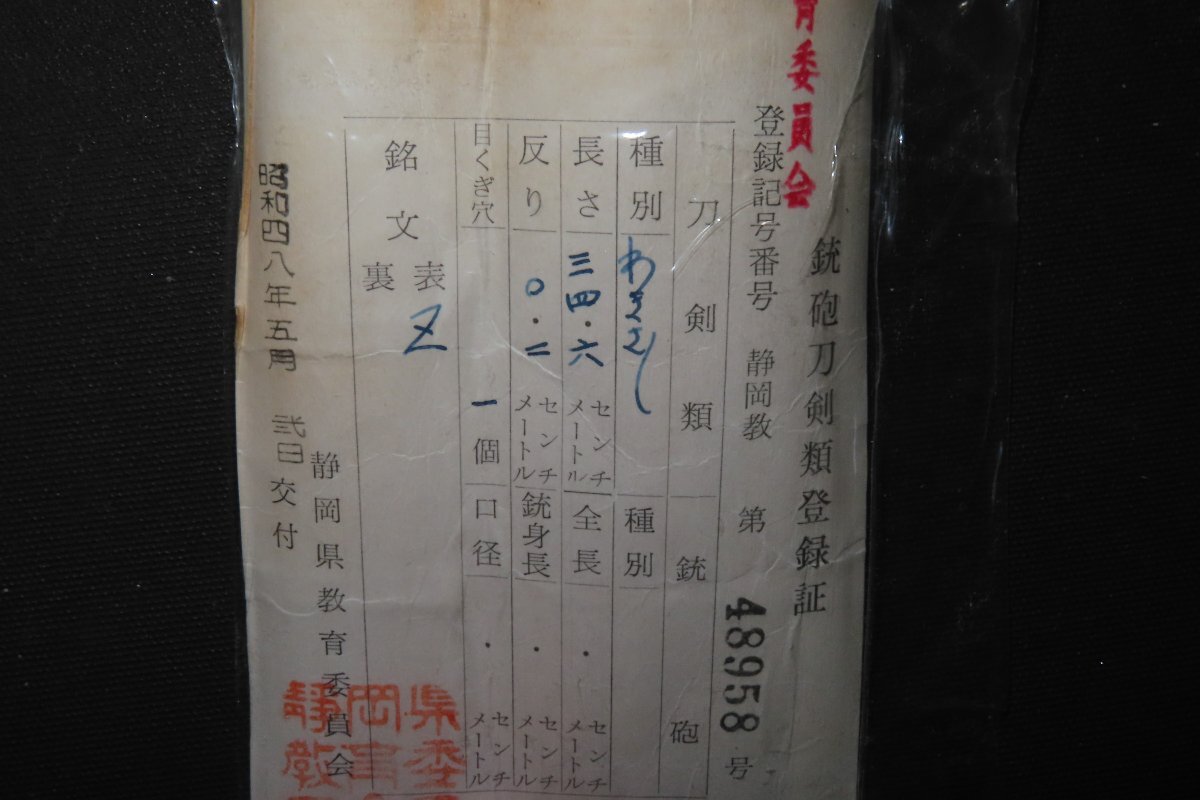 育委員会
銃砲刀剣類登録証
登録記号番号 静岡教 第 48958 号
刀剣類 銃砲
種別 わきざし 種別
長さ 三四・六 センチメートル 全長 ・ センチメートル
反り 〇・二 センチメートル 銃身長 ・ センチメートル
目くぎ穴 一個 口径 ・ センチメートル
銘文 表
裏
静岡県教育委員会
昭和四八年五月 弐日交付
県委
岡育
静教